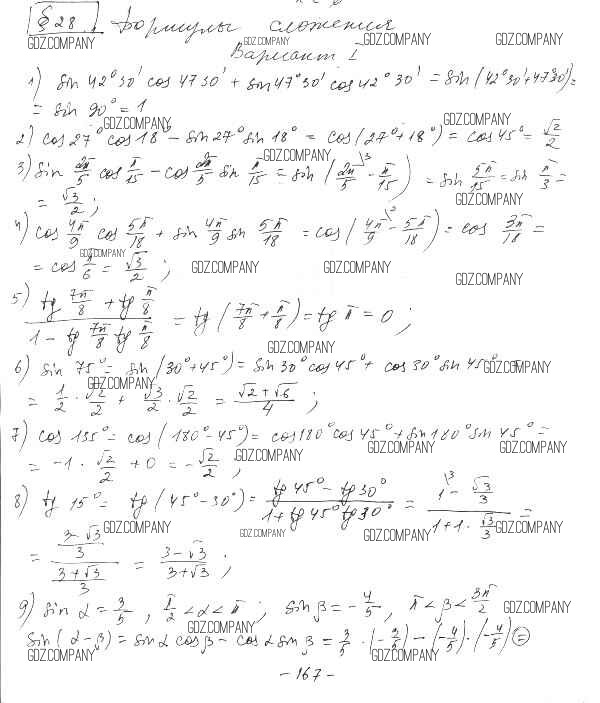 § 28. Формулы сложения
Вариант I
1) sin 42°30' cos 47°30' + sin 47°30' cos 42°30' = sin (42°30' + 47°30') =
= sin 90° = 1
2) cos 27° cos 18° - sin 27° sin 18° = cos (27° + 18°) = cos 45° = √2/2
3) sin 2π/5 cos π/15 - cos 2π/5 sin π/15 = sin (2π/5 - π/15) = sin 5π/15 = sin π/3 =
= √3/2 ;
4) cos 4π/9 cos 5π/18 + sin 4π/9 sin 5π/18 = cos (4π/9 - 5π/18) = cos 3π/18 =
= cos π/6 = √3/2 ;
5) (tg 7π/8 + tg π/8)/(1 - tg 7π/8 tg π/8) = tg (7π/8 + π/8) = tg π = 0 ;
6) sin 75° = sin (30° + 45°) = sin 30° cos 45° + cos 30° sin 45° =
= 1/2 · √2/2 + √3/2 · √2/2 = (√2 + √6)/4 ;
7) cos 135° = cos (180° - 45°) = cos 180° cos 45° + sin 180° sin 45° =
= -1 · √2/2 + 0 = -√2/2 ;
8) tg 15° = tg (45° - 30°) = (tg 45° - tg 30°)/(1 + tg 45° tg 30°) = (1 - √3/3)/(1 + 1 · √3/3) =
= ((3 - √3)/3)/((3 + √3)/3) = (3 - √3)/(3 + √3) ;
9) sin α = 3/5 , π/2 < α < π ; sin β = -4/5 , π < β < 3π/2
sin (α - β) = sin α cos β - cos α sin β = 3/5 · (-3/5) - (-4/5) · (-4/5) =
- 167 -
GDZ.COMPANY